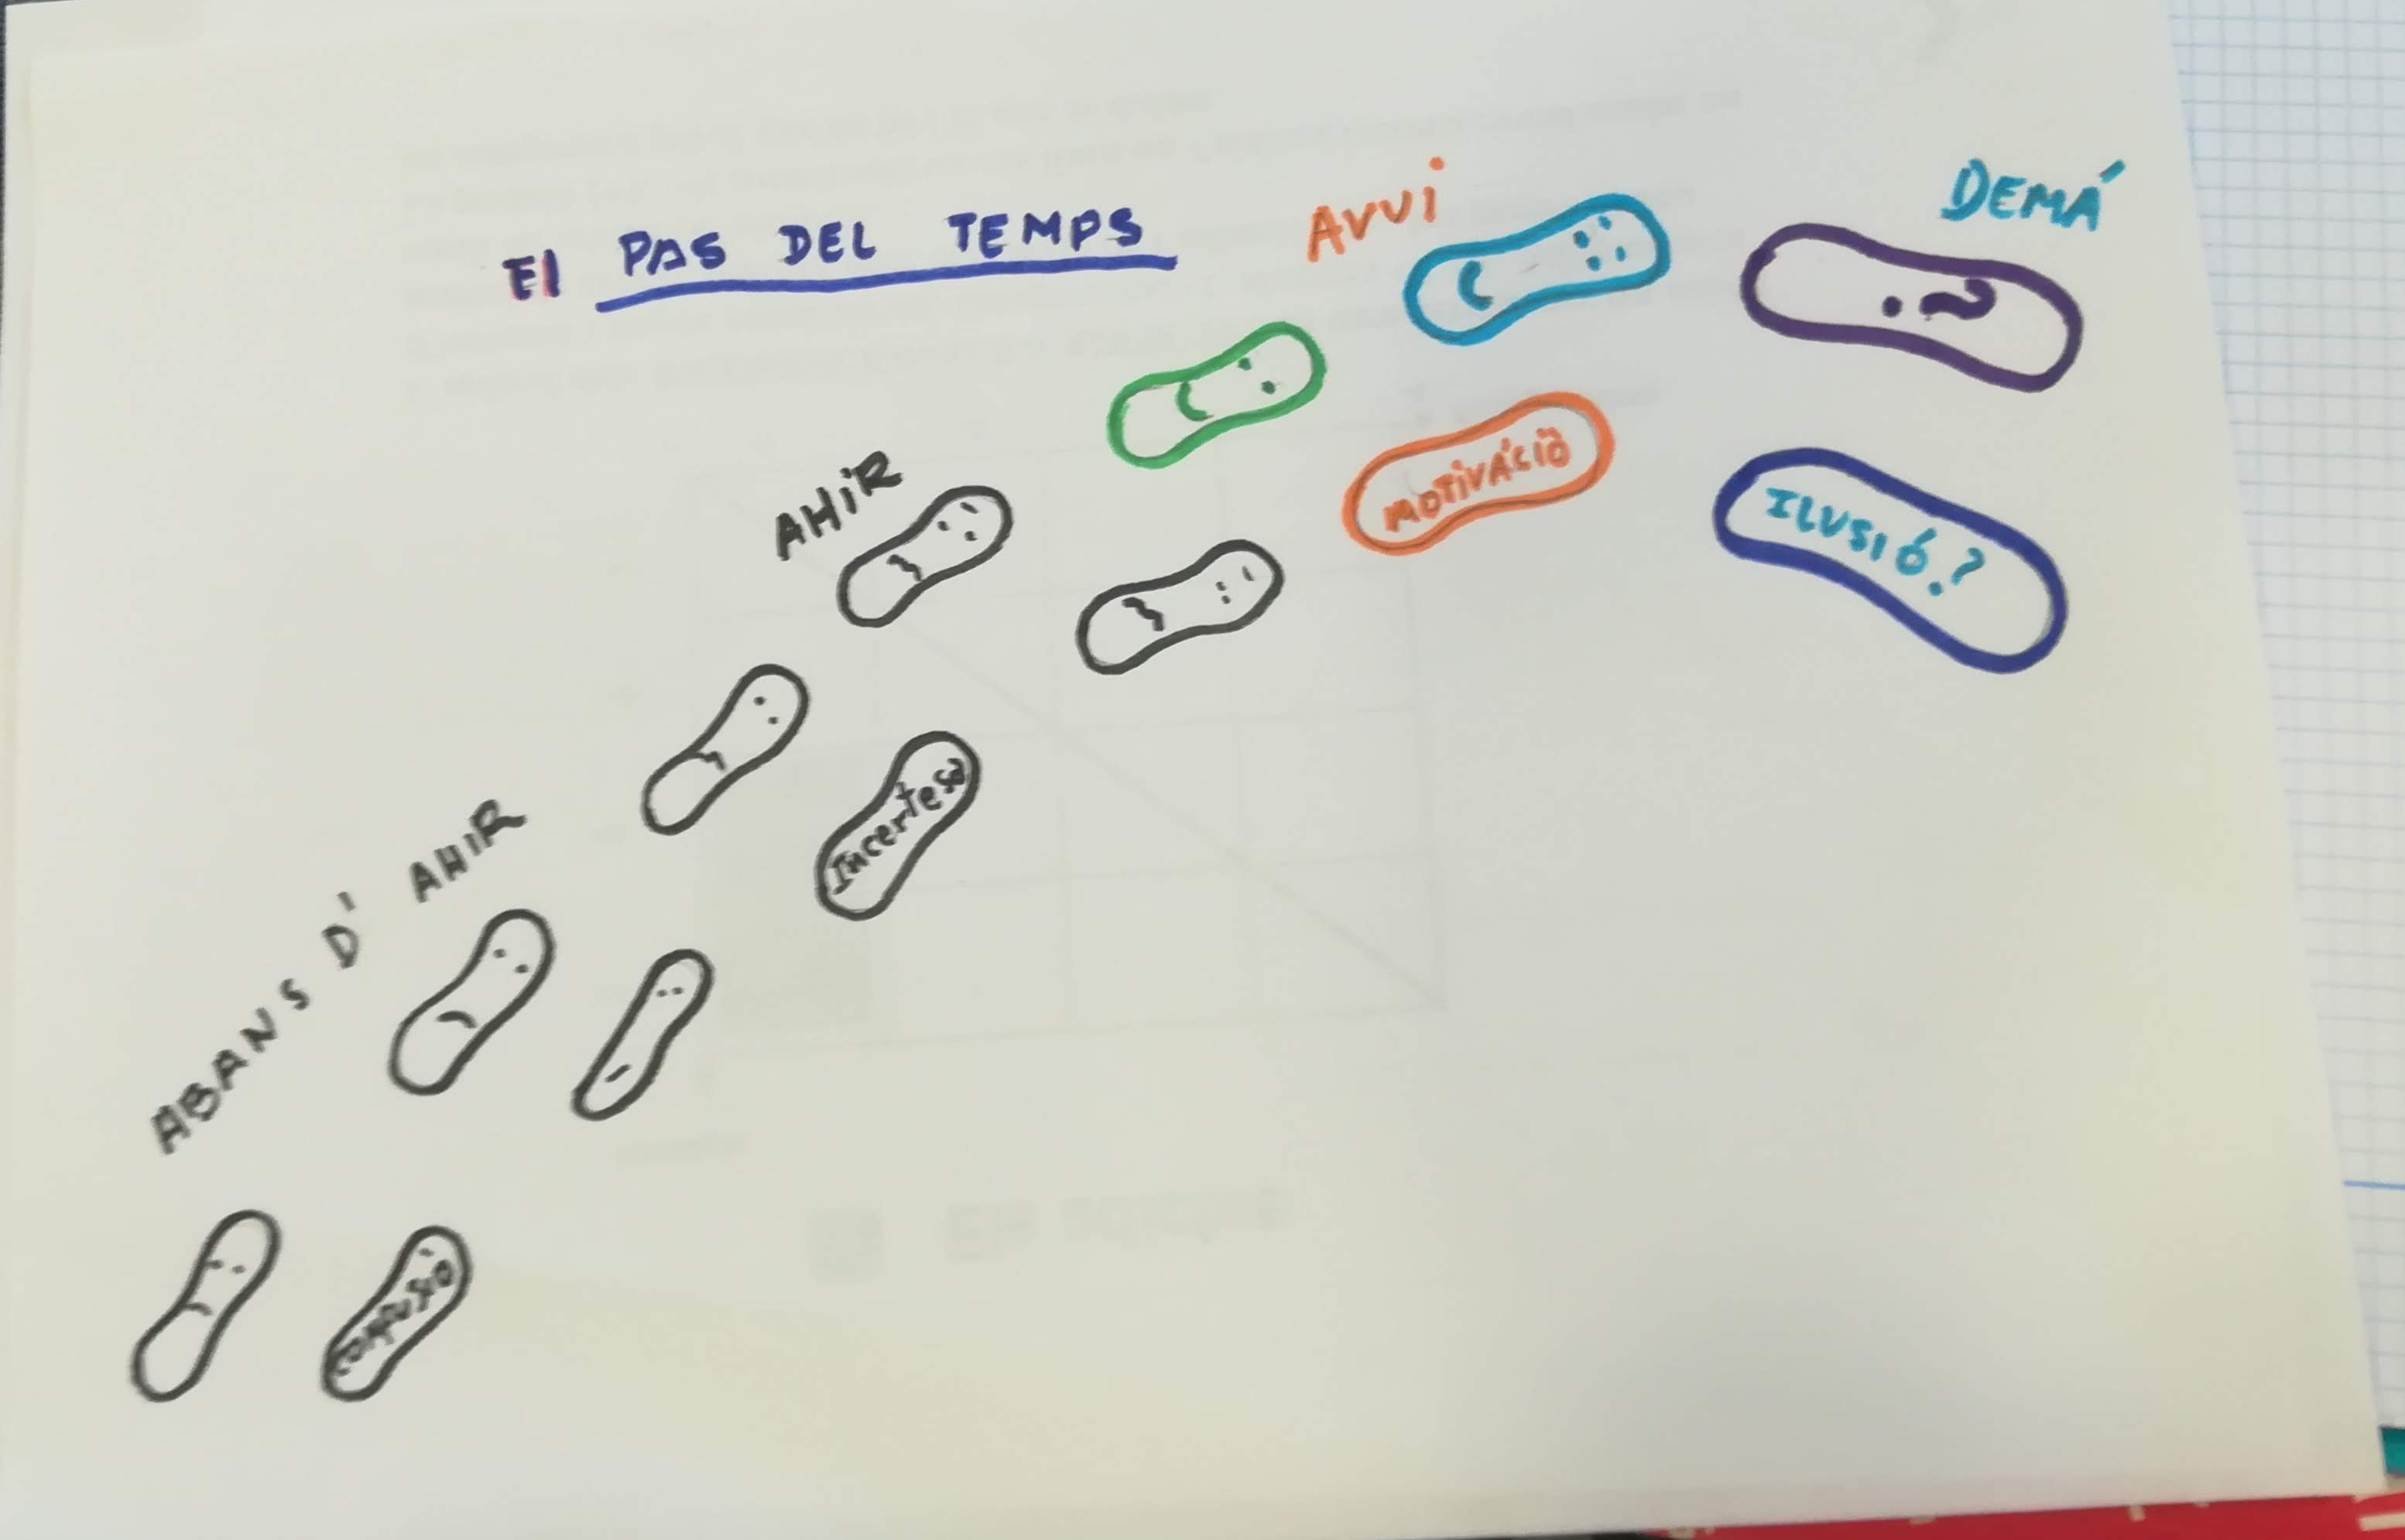 El PAS DEL TEMPS
AVUI
DEMÁ
MOTIVÁCIÓ
ILUSIÓ?
AHIR
Incertesa
ABANS D' AHIR
Confusió